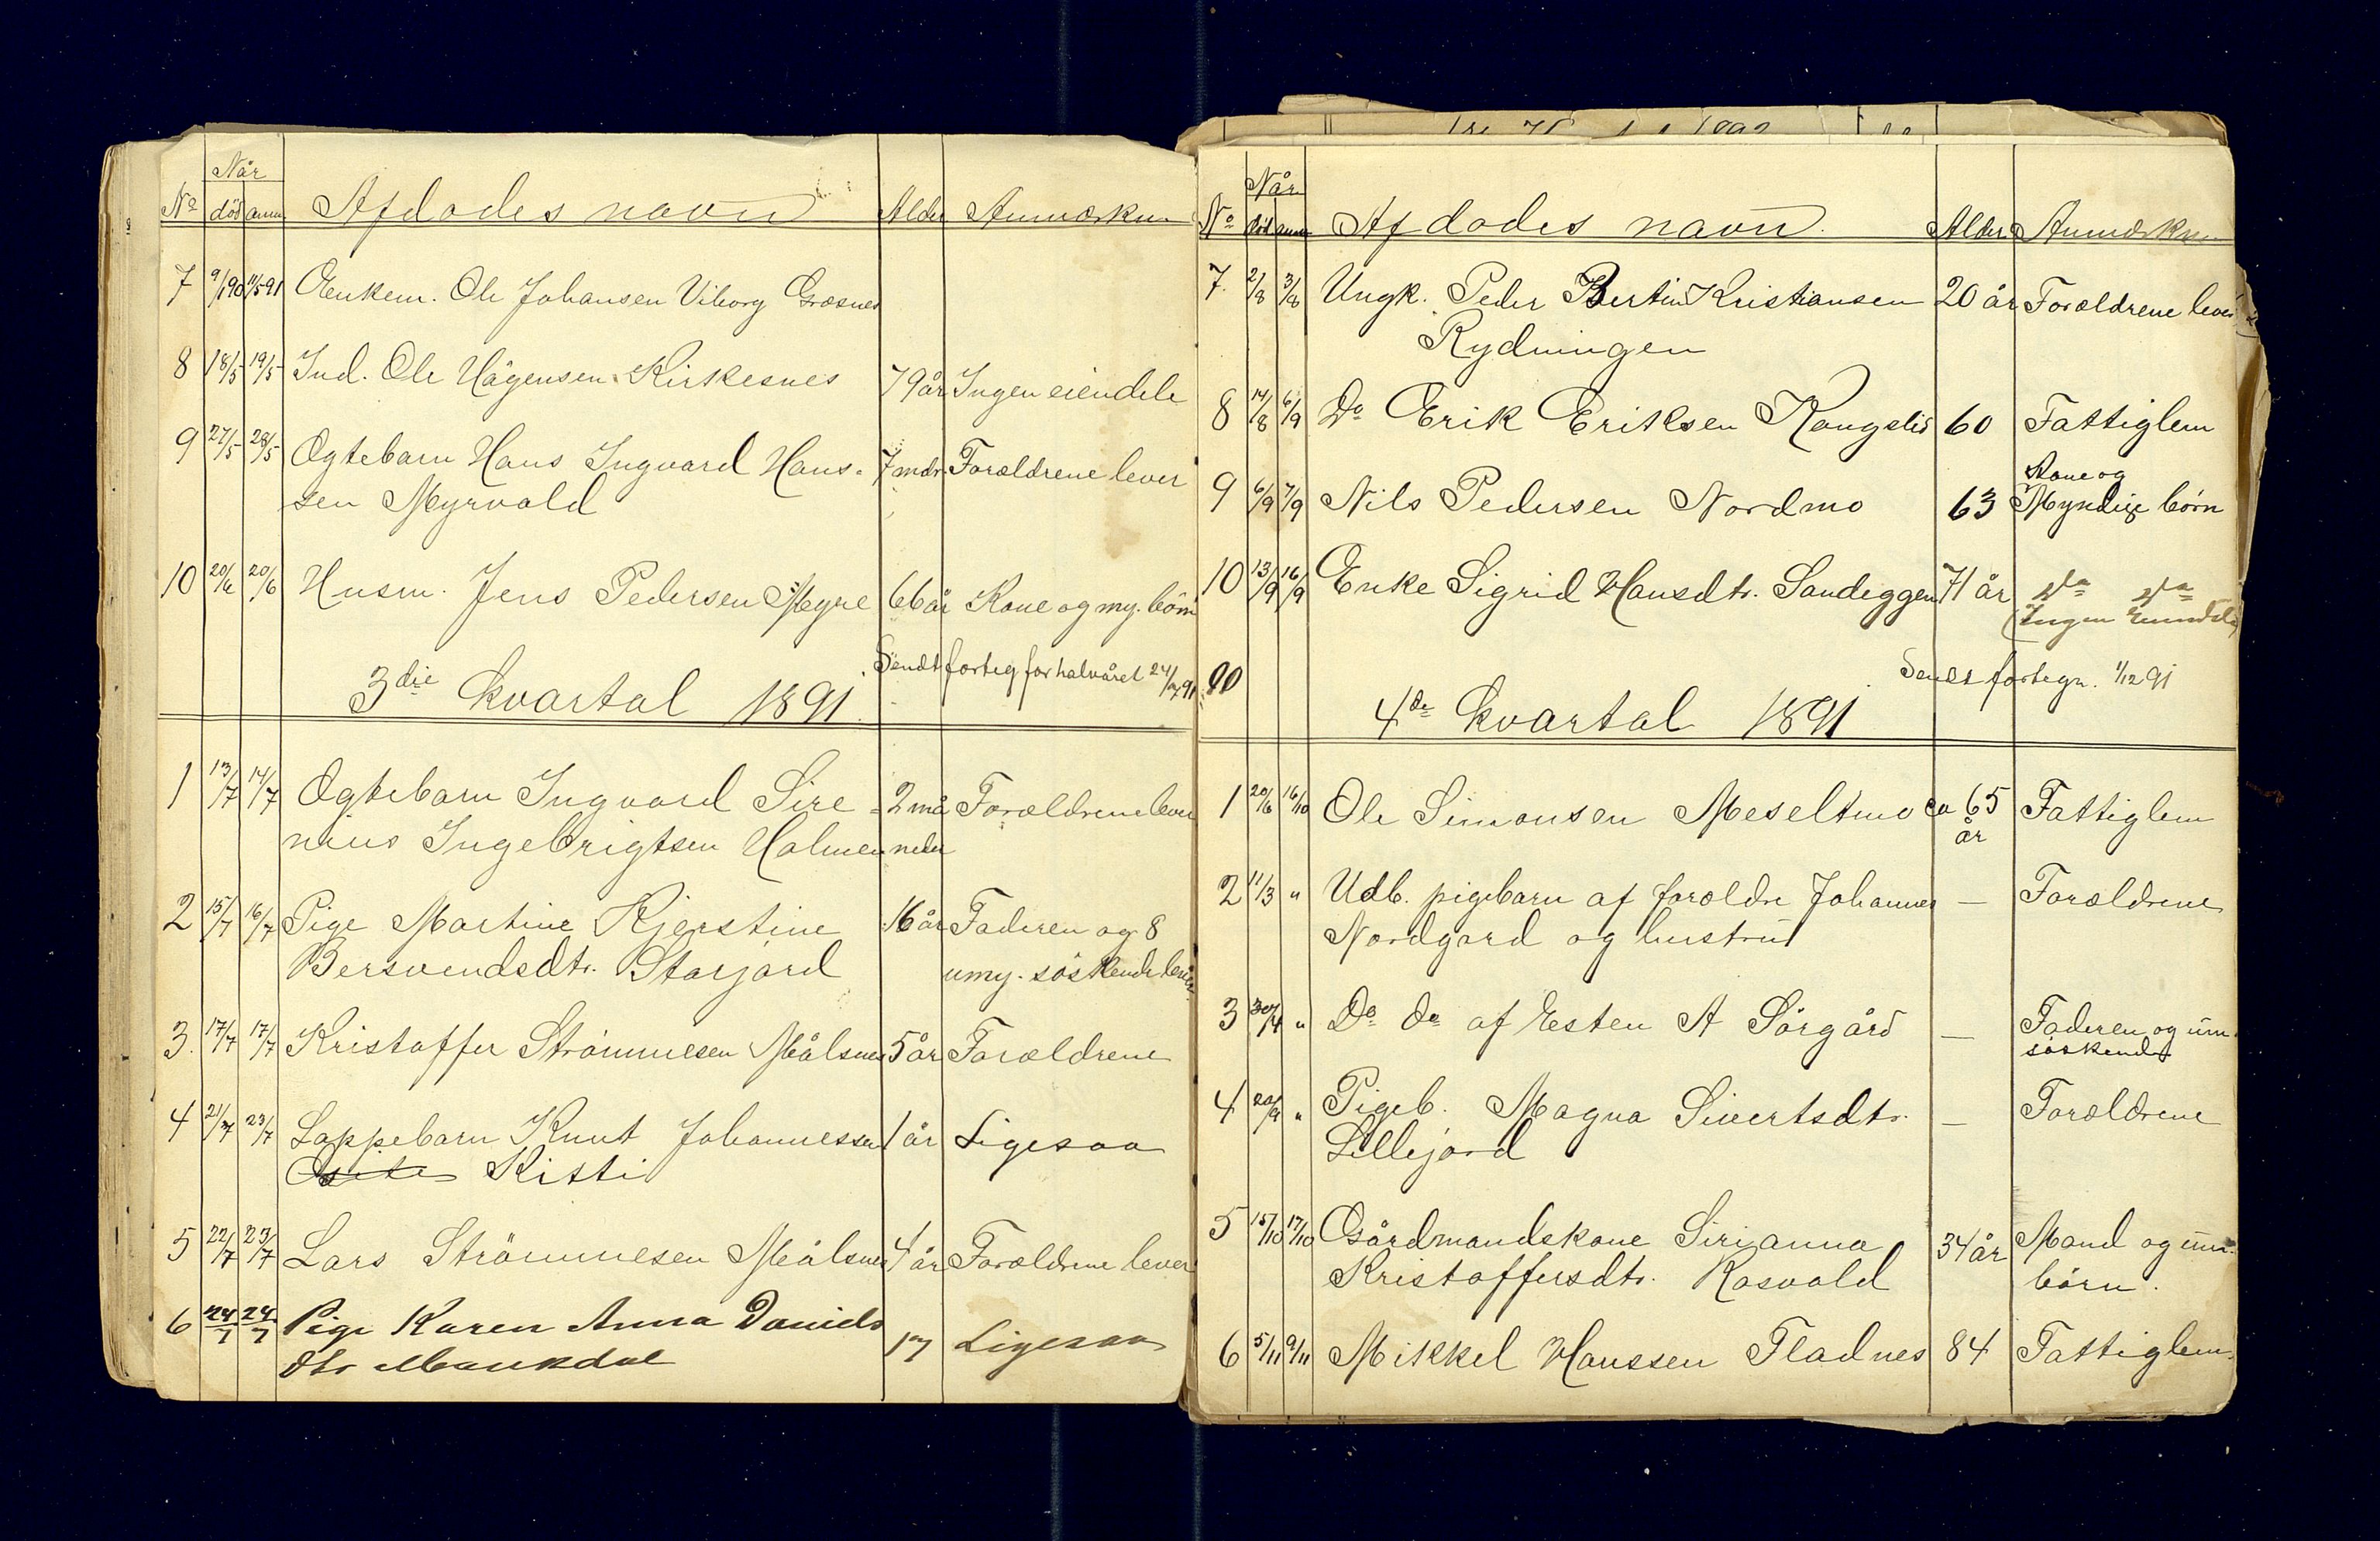 Når
No död anm Afdødes navn Alder Anmærkn
7 9/1 90 11/5 91 Enkem. Ole Johansen Viborg Grasnes
8 18/5 19/5 Ind. Ole Hågensen Kirkesnes 79 år Ingen eiendele
9 27/5 28/5 Ægtebarn Hans Ingvard Hans- 7 mdr. Forældrene lever
sen Myrvold
10 20/6 20/6 Husm. Jens Pedersen Myre 66 år Kone og my. börn
Sendt forteg for halvåret 24/7 91
3die kvartal 1891.
1 13/7 14/7 Ægtebarn Ingvard Sire- 2 må Forældrene lever
nius Ingebrigtsen Holmen neder
2 15/7 16/7 Pige Martine Kjerstine 16 år Faderen og 8
Bersvendsdtr. Storjord umy. söskende lever
3. 17/7 17/7 Kristoffer Strömmesen Målsnes 5 år Forældrene
4 21/7 23/7 Lappebarn Knut Johannessen 1 år Ligesaa
Kitti
5 22/7 23/7 Lars Strömmesen Målsnes 4 år Forældrene lever
6 24/7 24/7 Pige Karen Anna Daniels
dtr Maukdal 17 Ligesaa
Når
No död anm Afdødes navn. Alder Anmærkn
7. 2/8 3/8 Ungk. Peder Bertin Kristiansen 20 år Forældrene lever
Rydningen
8 14/8 6/9 Do Erik Eriksen Kongslid 60 Fattiglem
Kone og
9 6/9 7/9 Nils Pedersen Nordmo 63 Myndige börn
10 13/9 16/9 Enke Sigrid Hansdtr. Sandeggen 71 år do do
(Ingen Eiendele)
Sendt fortegn. 1/12 91
4de kvartal 1891
1 20/6 16/10 Ole Simonsen Meseltmo ca 65 Fattiglem
år
2 11/3 " Udb. pigebarn af forældre Johannes — Forældrene
Nordgard og hustru
3 30/4 " Do do af Esten A Sörgård — Faderen og um.
söskende
4 20/9 " Pigeb. Magna Sivertsdtr. — Forældrene
Lillejord
5 15/10 17/10 Gårdmandskone Sirianna 34 år Mand og um.
Kristoffersdtr. Rosvold börn.
6 5/11 9/11 Mikkel Hanssen Fladnes 84 Fattiglem.